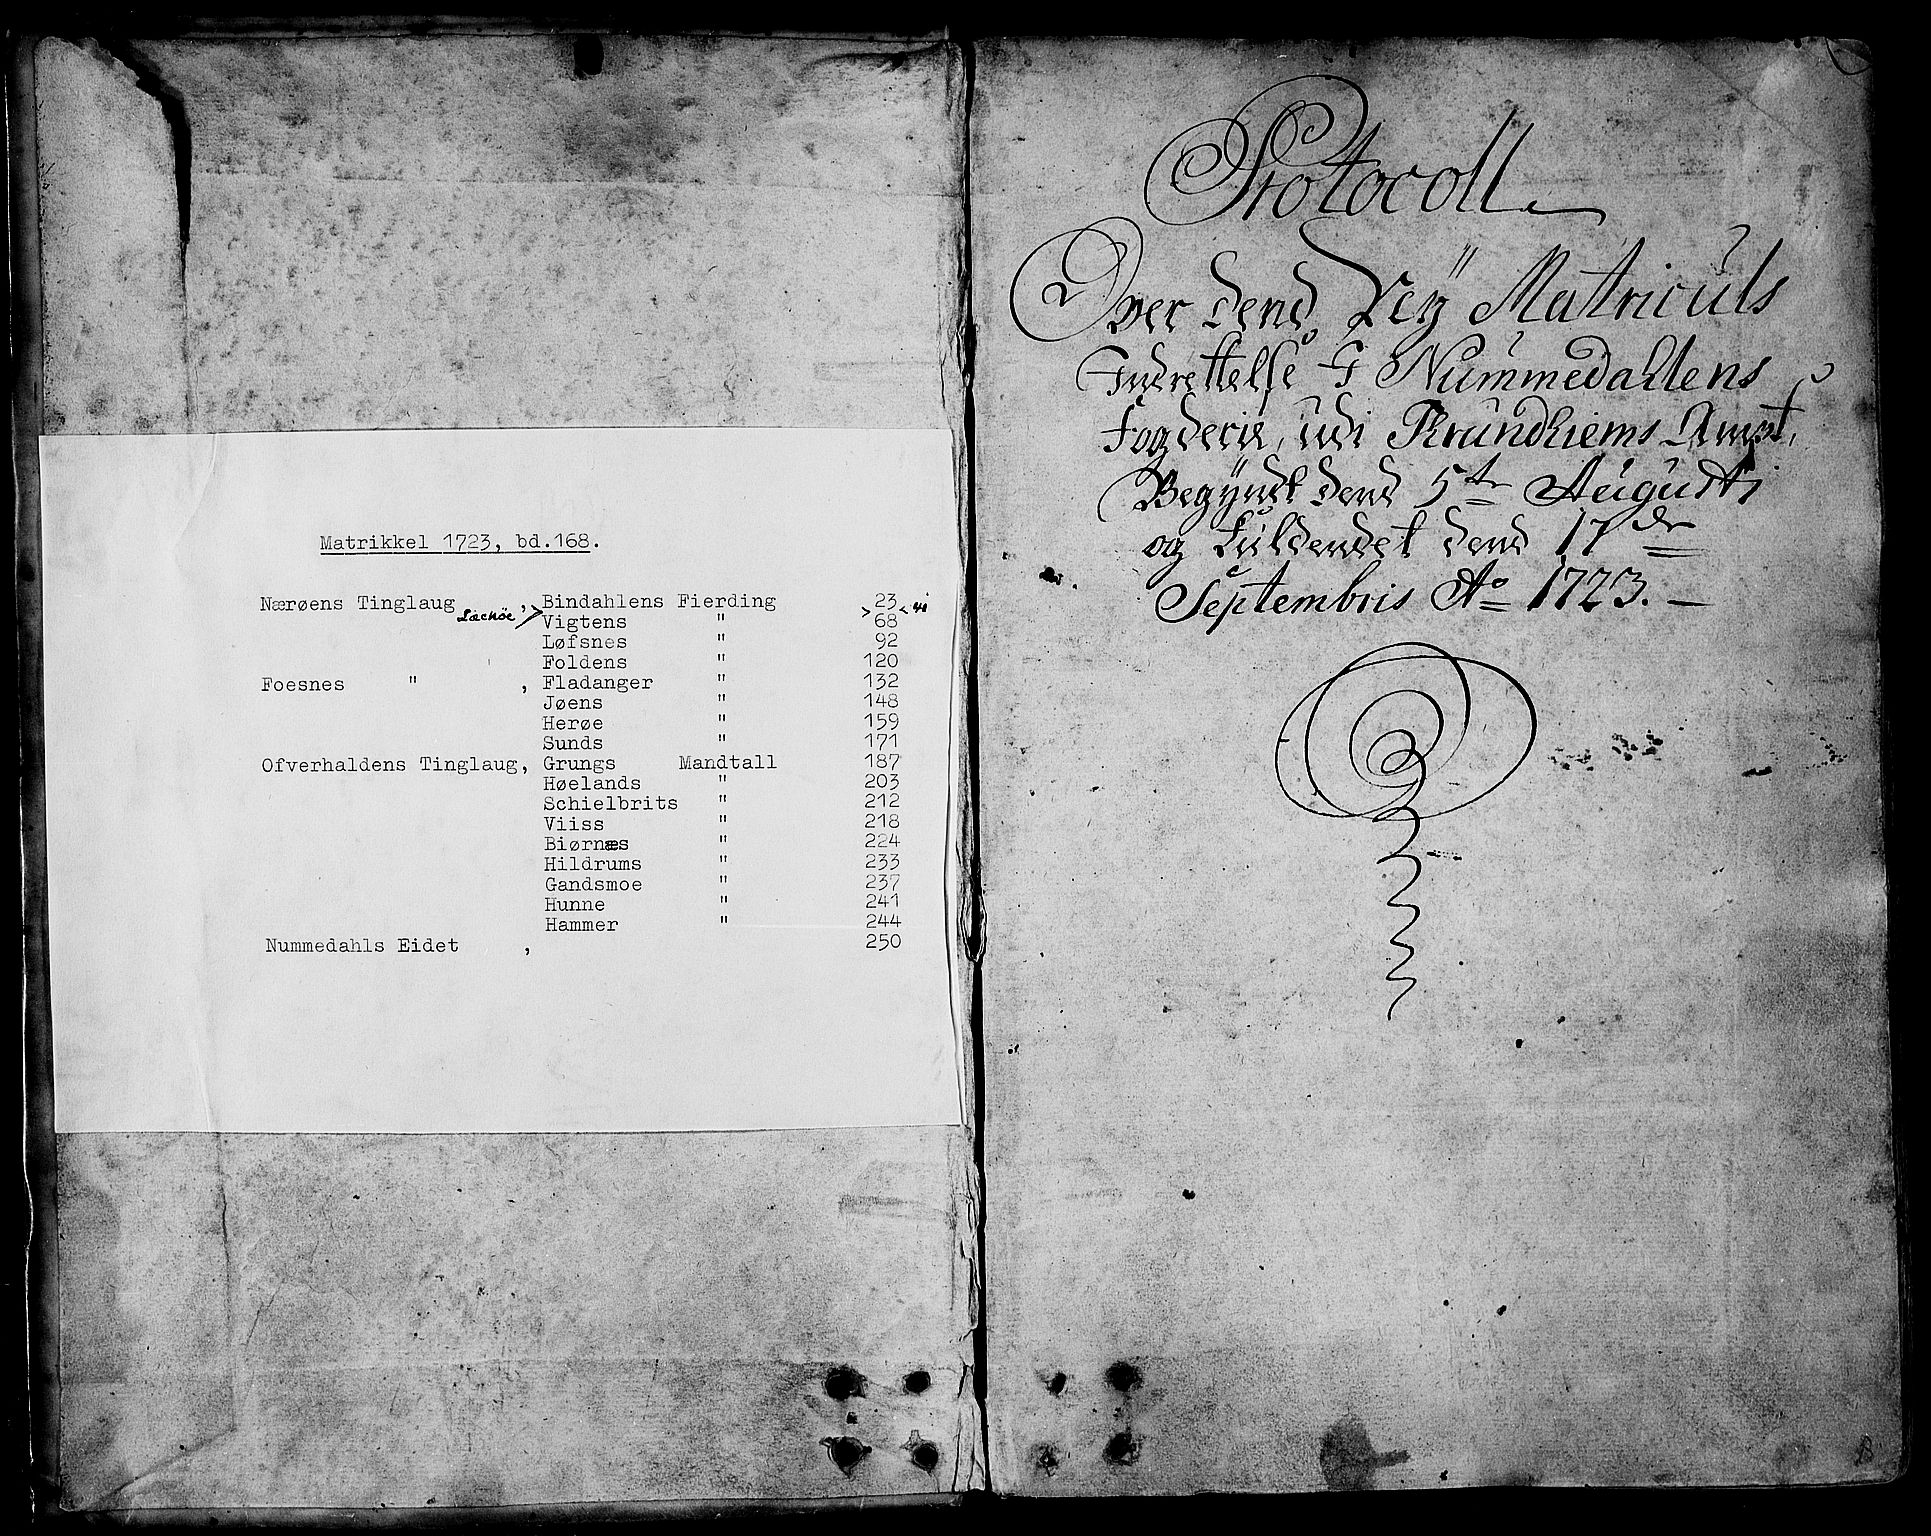 Matrikkel 1723, bd.168.
Nærøens Tinglaug , Bindahlens Fierding 23
Læckøe > > < 41
Vigtens " 68
Løfsnes " 92
Foldens " 120
Foesnes " , Fladanger " 132
Jøens " 148
Herøe " 159
Sunds " 171
Ofverhaldens Tinglaug, Grungs Mandtall 187
Høelands " 203
Schielbrits " 212
Viiss " 218
Biørnæs " 224
Hildrums " 233
Gandsmoe " 237
Hunne " 241
Hammer " 244
Nummedahls Eidet , 250
Protocoll
Over dend Nÿ Matriculs
Indrettelse I Nummedahlens
Fogderie, udi Trundhiems Ampt,
Begÿndt dend 5te Augusti
og Fuldendet dend 17de
Septembris Ao 1723.